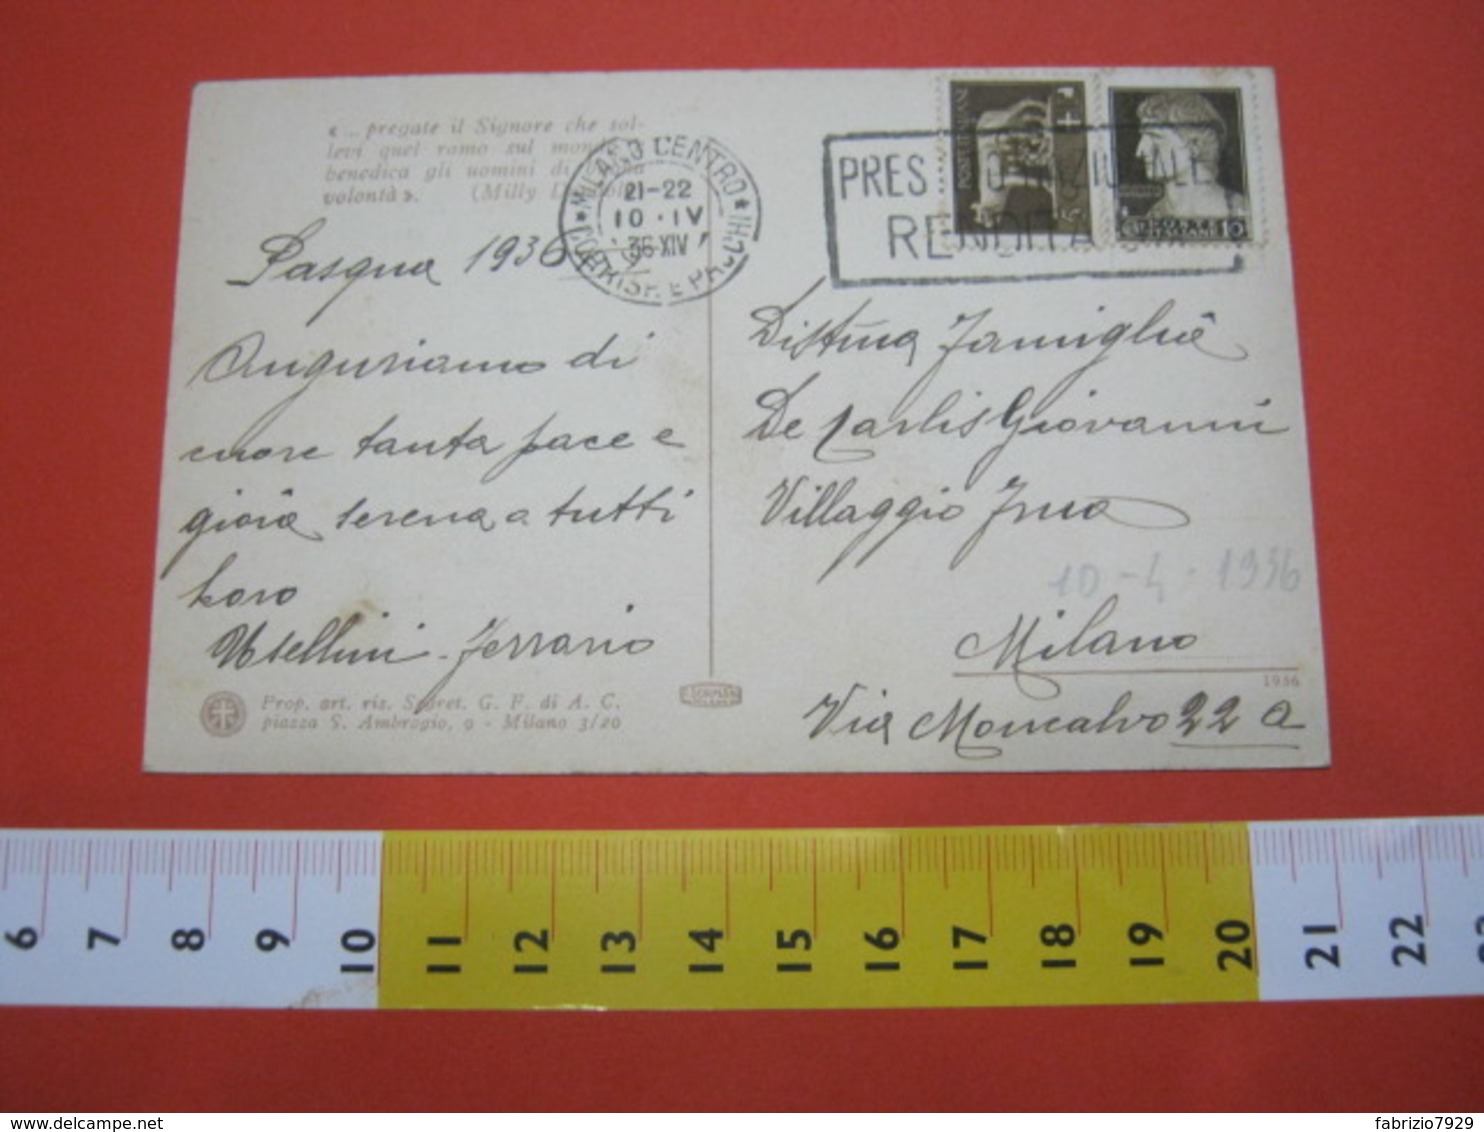 «... pregate il Signore che sol-
levi quel ramo sul mondo e
benedica gli uomini di
volontà». (Milly
MILANO CENTRO
21-22
10 · IV
36 XIV
CORRISP. E PACCHI
PRES NAZIONALE
RENDITA
Pasqua 1936
Auguriamo di
cuore tanta pace e
gioia serena a tutti
loro
Usellini - Ferrario
Distinta Famiglia
De Carlis Giovanni
Villaggio
10-4-1936
Milano
Via Moncalvo 22 a
1936
Prop. art. riz. Segret. G. F. di A. C.
piazza S. Ambrogio, 9 - Milano 3/20
6 7 8 9 10 11 12 13 14 15 16 17 18 19 20 21 22
fabrizio7929